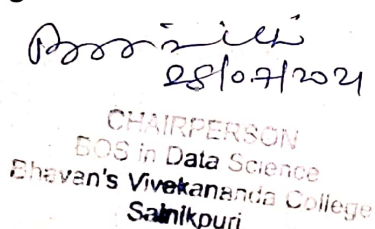 28/07/2021
CHAIRPERSON
BOS in Data Science
Bhavan's Vivekananda College
Sainikpuri